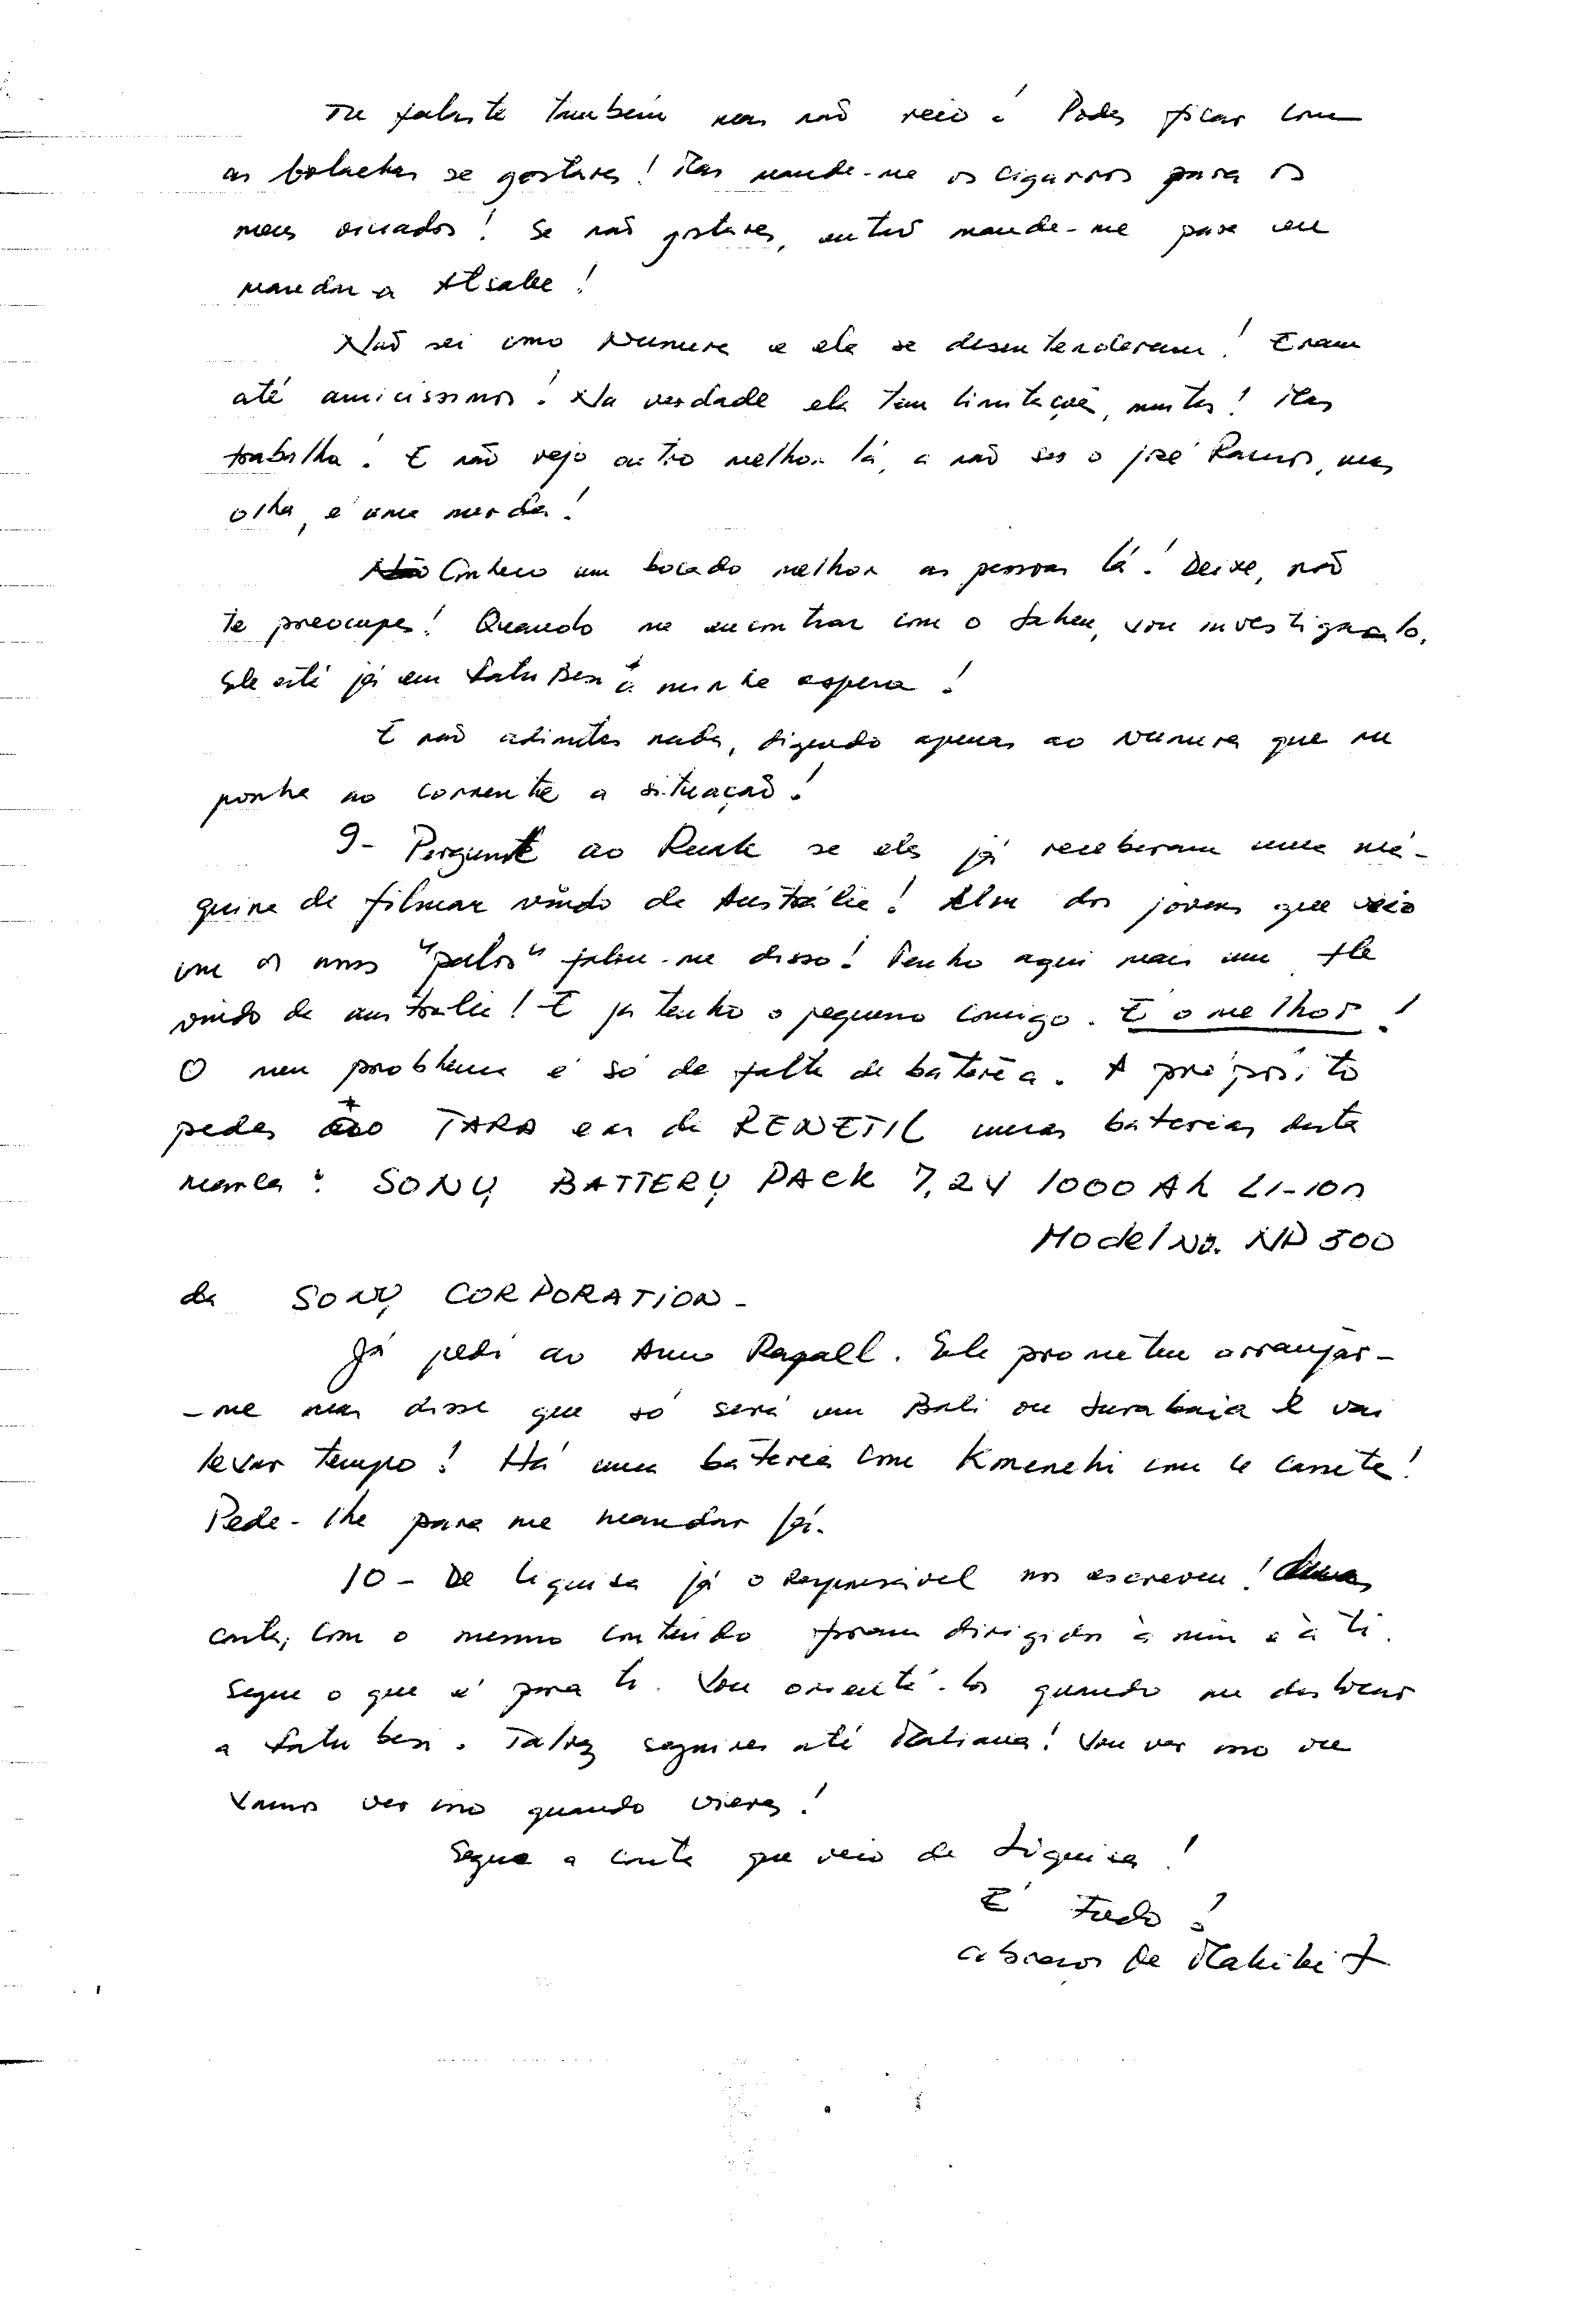 Tu falaste também mas não veio! Podes ficar com
as bolachas se gostares! Mas mande-me os cigarros para os
meus viciados! Se não gostares, então mande-me para eu
mandar a Atsabe!
Não sei como Numura e ele se desentenderam! Eram
até amicissimos! Na verdade ele tem limitações, muitas! Mas
trabalha! E não vejo outro melhor lá, a não ser o José Ramos, mas
olha, é uma merda!
Conheco um bocado melhor as pessoas lá! Deixe, não
te preocupes! Quando me encontrar com o , vou investigá-lo.
Ele está já em Fatu Besi à minha espera!
E não adimites nada, dizendo apenas ao Numura que me
ponha ao corrente a situação!
9- Pergunte ao Ruak se eles já receberam uma má-
quina de filmar vindo da Austrália! Um dos jovens que veio
com os nossos "pulos" falou-me disso! Tenho aqui mais um
vindo da australia! E já tenho o pequeno comigo. E o melhor!
O meu problema é só de falta de bateria. A própósito
pedes ao TARA e os da RENETIL umas baterias desta
marca: SONY BATTERY PACK 7,2V 1000 Ah LI-ion
Model No. NP 500
da SONY CORPORATION-
Já pedi ao Amo Rafaell. Ele prometeu arranjar-
-me mas disse que só será em Bali ou Surabaia e vai
levar tempo! Há uma bateria com Kmenehi com a cassete!
Pede-lhe para me mandar já.
10- De Liquisa já o responsável nos escreveu!
cartas com o mesmo conteúdo foram dirigidas à mim e à ti.
Segue o que é para ti. Vou orientá-los quando me deslocar
a Fatu besi. Talvez seguires até Maliana! Vou ver isso ou
vamos ver isso quando vieres!
Segue a carta que veio de Liquisa!
É tudo!
abraços de